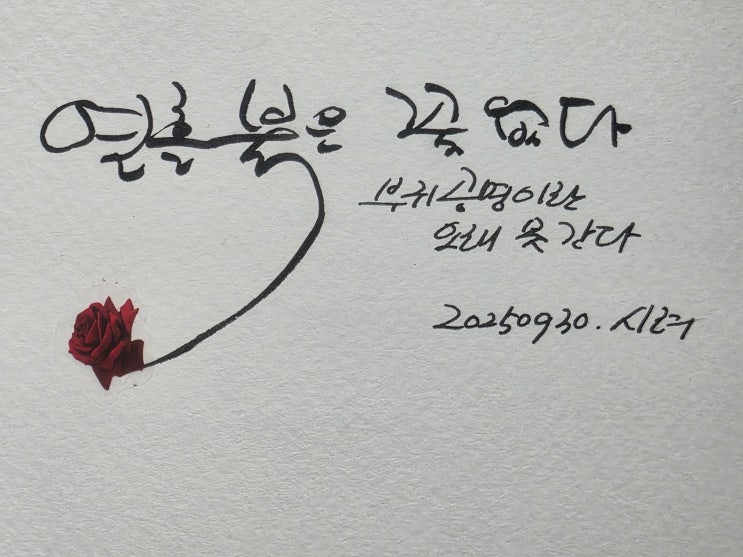 열흘 붉은 꽃 없다
부귀공명이란
오래 못 간다
20250930.